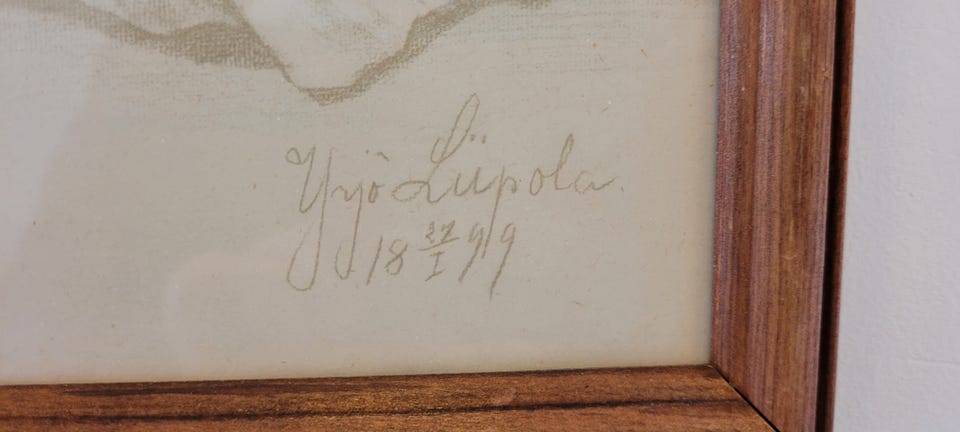 Yrjö Liipola.
18 27/I 99